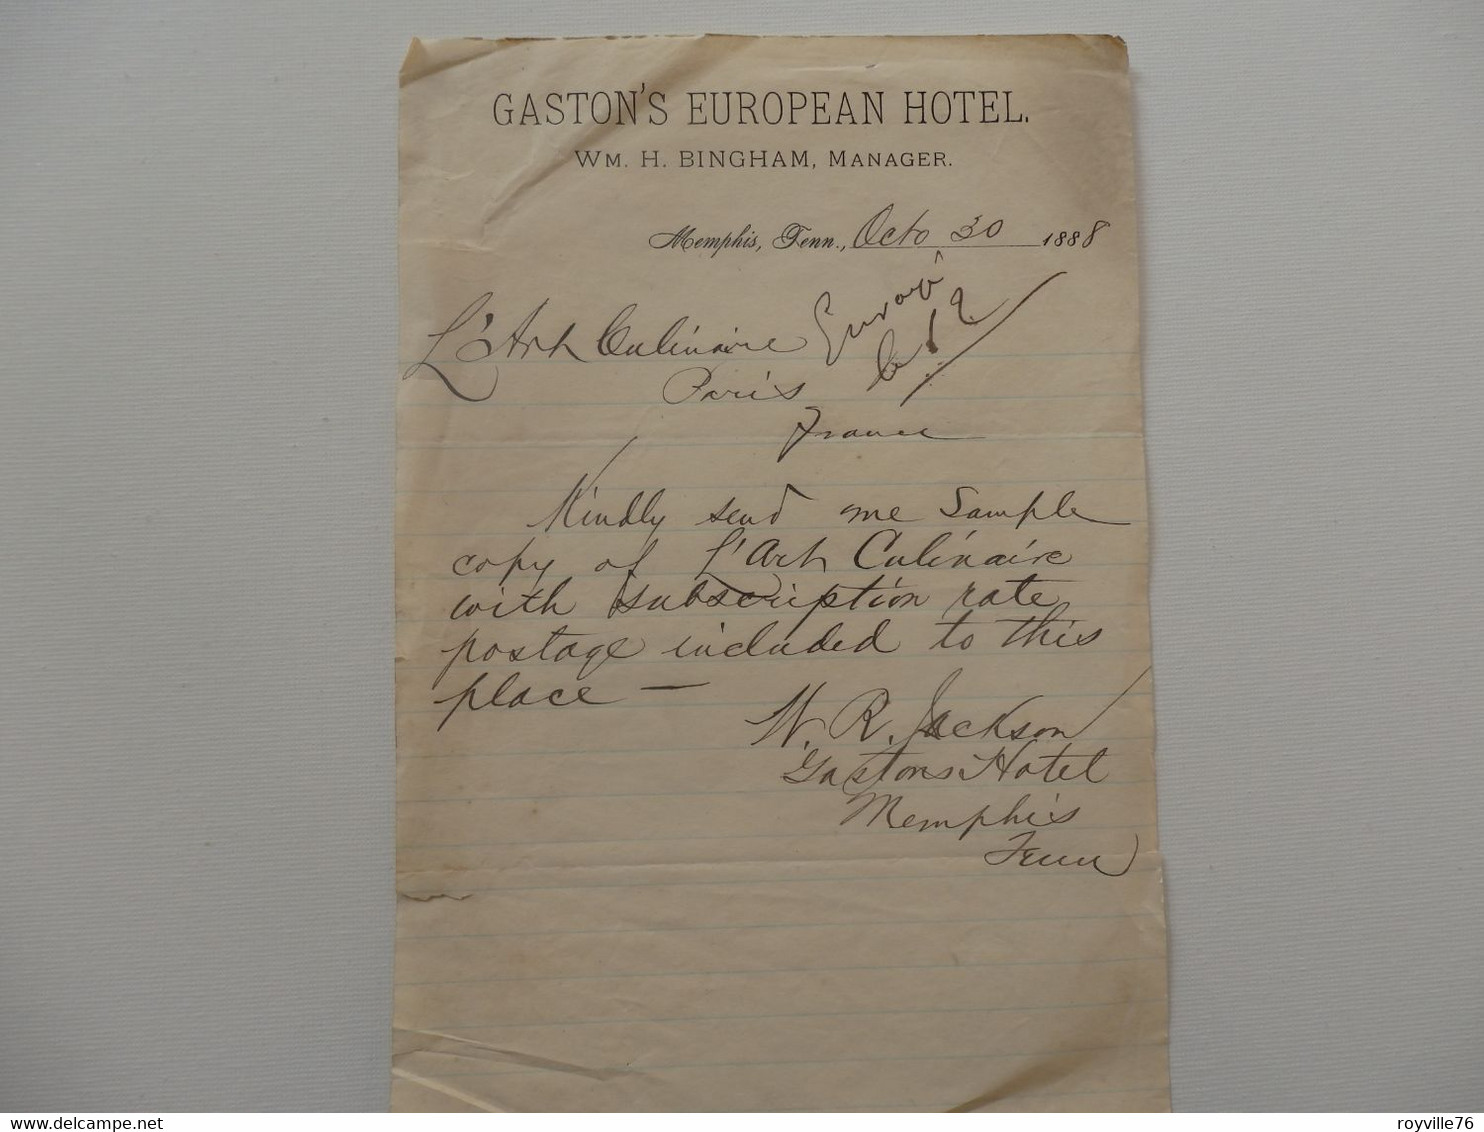 GASTON'S EUROPEAN HOTEL.
WM. H. BINGHAM, MANAGER.
Memphis, Tenn., Octo 30 1888
L'Art Culinaire
Paris
France
Envoyé
le
Kindly send me Sample
copy of L'Art Culinaire
with subscription rate
postage included to this
place —
W. R. Jackson
Gastons Hotel
Memphis
Tenn
delcampe.net
royville76